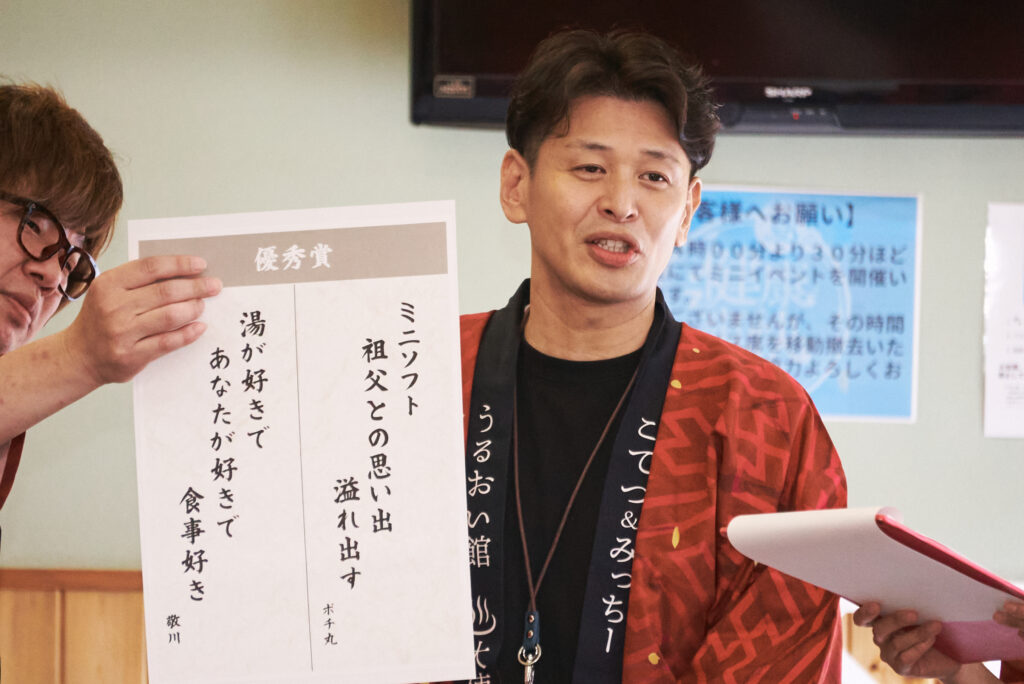 優秀賞
ミニソフト
祖父との思い出
溢れ出す
ポチ丸
湯が好きで
あなたが好きで
食事好き
敬川
うるおい館
こてつ&みっちー
SHARP
客様へお願い】
時00分より30分ほど
にてミニイベントを開催い
す。
していませんが、その時間
を移動撤去いた
力よろしくお